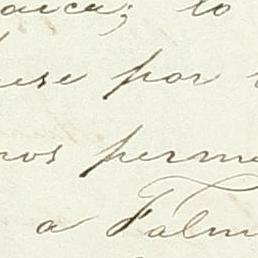 aica; lo
ese por
nos perme
a Falm